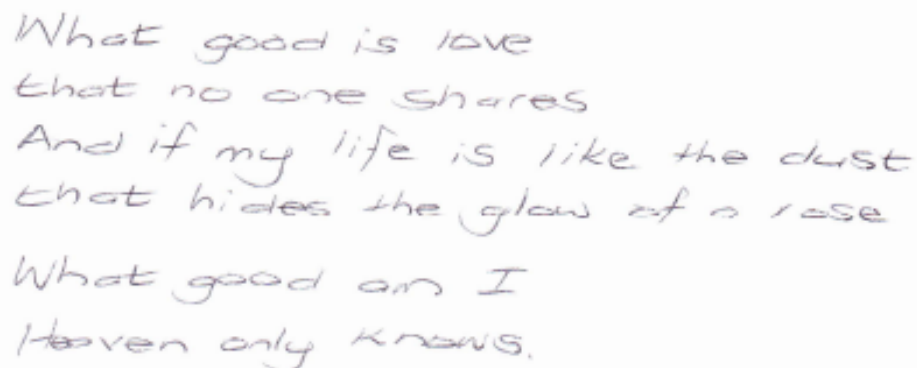 What good is love
that no one shares
And if my life is like the dust
that hides the glow of a rose
What good am I
Heaven only knows.